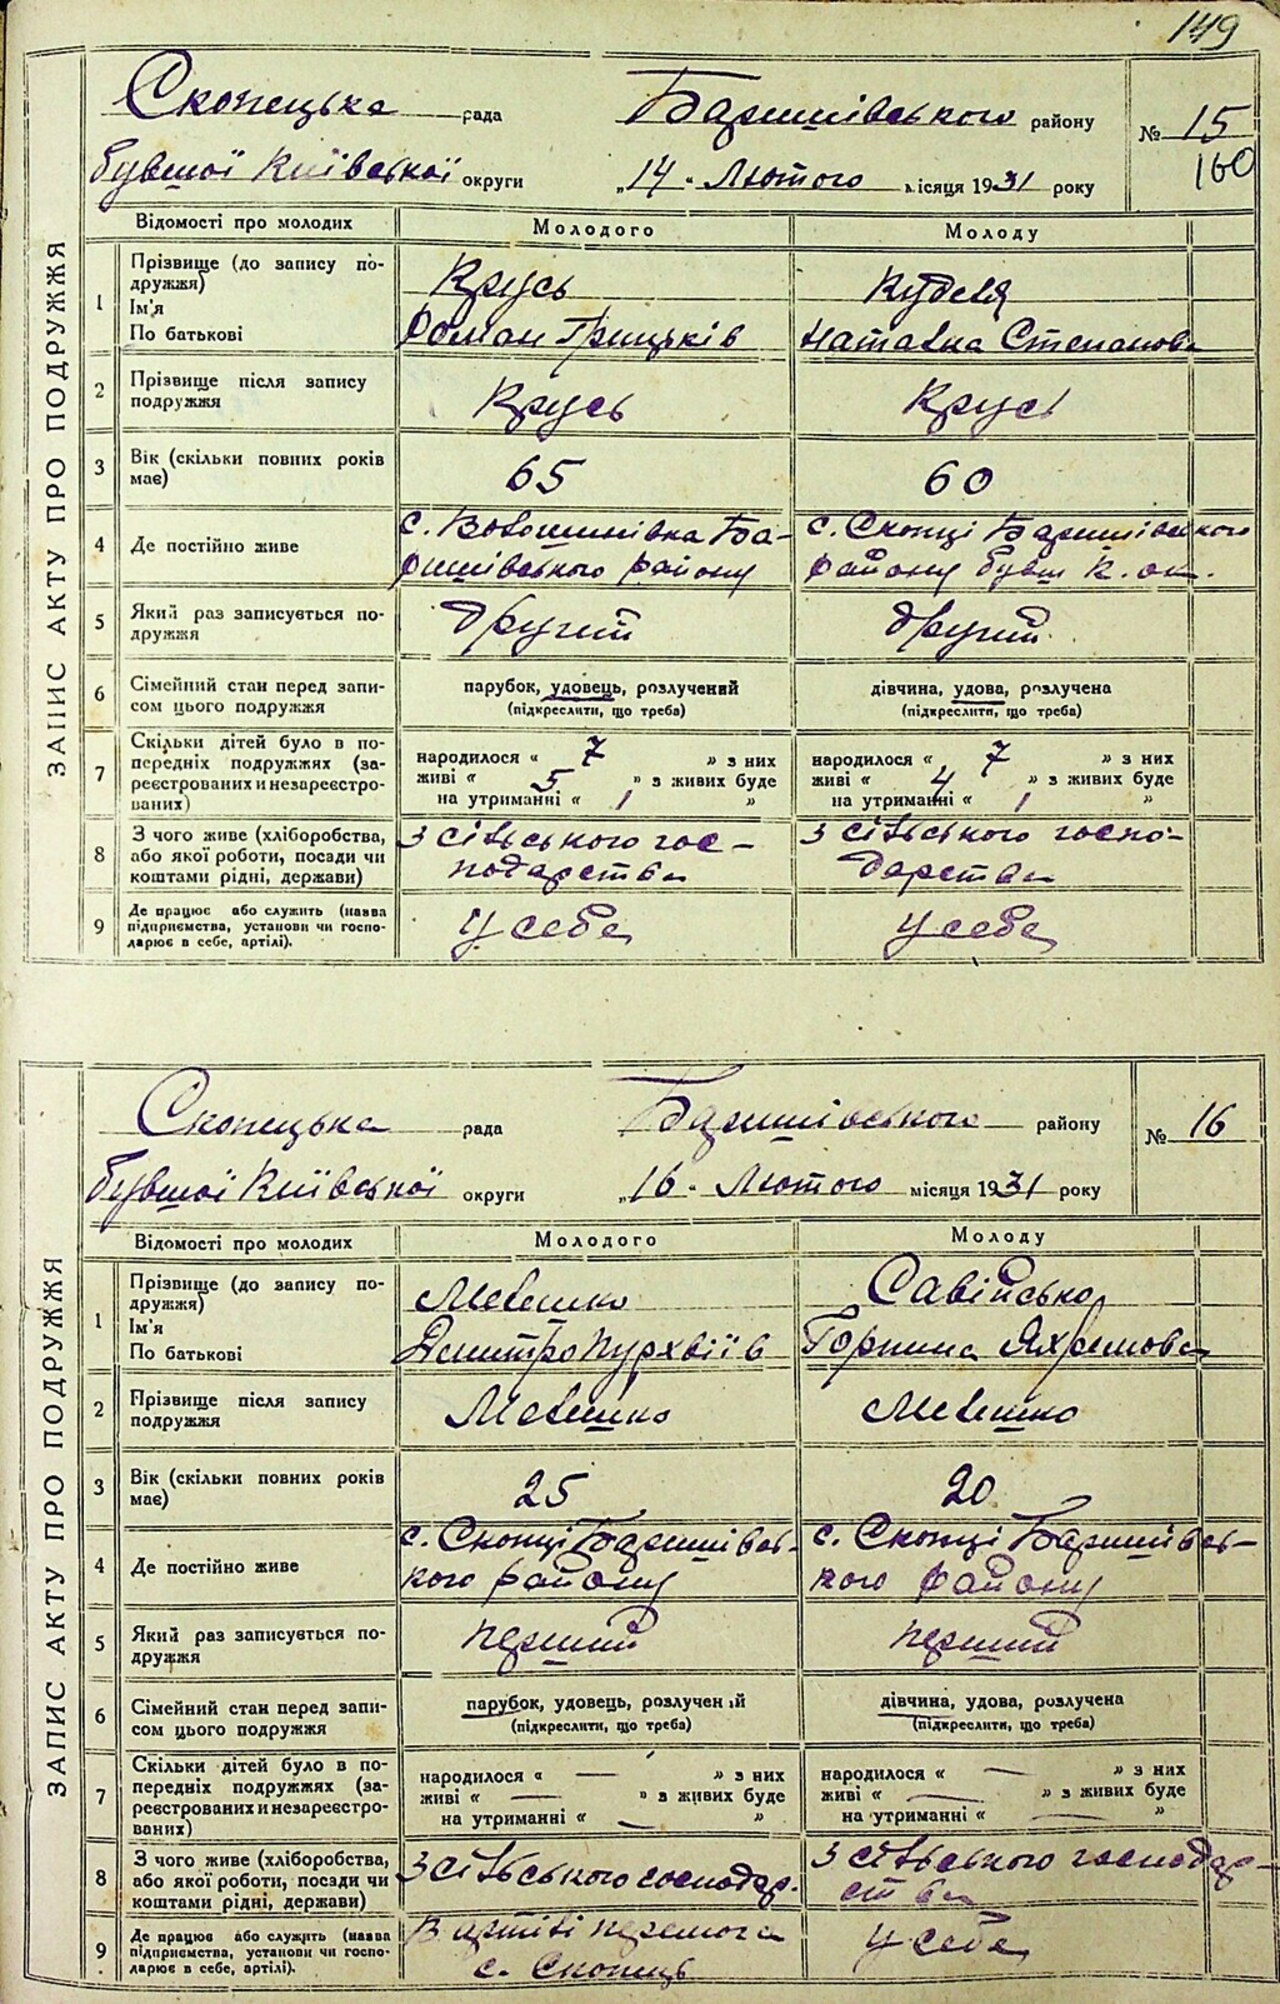 149
Скопецька рада Баришівського району № 15
160
бувшої Київської округи „14" Лютого місяця 1931 року
ЗАПИС АКТУ ПРО ПОДРУЖЖЯ
Відомості про молодих Молодого Молоду
1 Прізвище (до запису по-
дружжя)
Крусь Куделя
Ім'я
По батькові
Роман Грицьків Наталка Степанова
2 Прізвище після запису
подружжя
Крусь Крусь
3 Вік (скільки повних років
має)
65 60
4 Де постійно живе
с. Волошинівка Ба-
ришівського району
с. Скопці Баришівського
району бувш К. ок.
5 Який раз записується по-
дружжя
другий другий
6 Сімейний стан перед запи-
сом цього подружжя
парубок, удовець, розлучений
(підкреслити, що треба)
дівчина, удова, розлучена
(підкреслити, що треба)
7 Скільки дітей було в по-
передніх подружжях (за-
реєстрованих и незареєстро-
ваних)
народилося « 7 » з них
живі « 5 » з живих буде
на утриманні « 1 »
народилося « 7 » з них
живі « 4 » з живих буде
на утриманні « 1 »
8 З чого живе (хліборобства,
або якої роботи, посади чи
коштами рідні, держави)
З сільського гос-
подарства
З сільського госпо-
дарства
9 Де працює або служить (назва
підприємства, установи чи госпо-
дарює в себе, артілі).
У себе У себе
Скопецька рада Баришівського району № 16
бувшої Київської округи „16" Лютого місяця 1931 року
ЗАПИС АКТУ ПРО ПОДРУЖЖЯ
Відомості про молодих Молодого Молоду
1 Прізвище (до запису по-
дружжя)
Мелешко Савійсько
Ім'я
По батькові
Дмитро Пурхвіїв Горпина Яхремова
2 Прізвище після запису
подружжя
Мелешко Мелешко
3 Вік (скільки повних років
має)
25 20
4 Де постійно живе
с. Скопці Баришівсь-
кого району
с. Скопці Баришівсь-
кого району
5 Який раз записується по-
дружжя
перший перший
6 Сімейний стан перед запи-
сом цього подружжя
парубок, удовець, розлучений
(підкреслити, що треба)
дівчина, удова, розлучена
(підкреслити, що треба)
7 Скільки дітей було в по-
передніх подружжях (за-
реєстрованих и незареєстро-
ваних)
народилося « — » з них
живі « — » з живих буде
на утриманні « — »
народилося « — » з них
живі « — » з живих буде
на утриманні « — »
8 З чого живе (хліборобства,
або якої роботи, посади чи
коштами рідні, держави)
З сільського господар.
З сільського господар-
ства
9 Де працює або служить (назва
підприємства, установи чи госпо-
дарює в себе, артілі).
В артілі перемога
с. Скопець
У себе